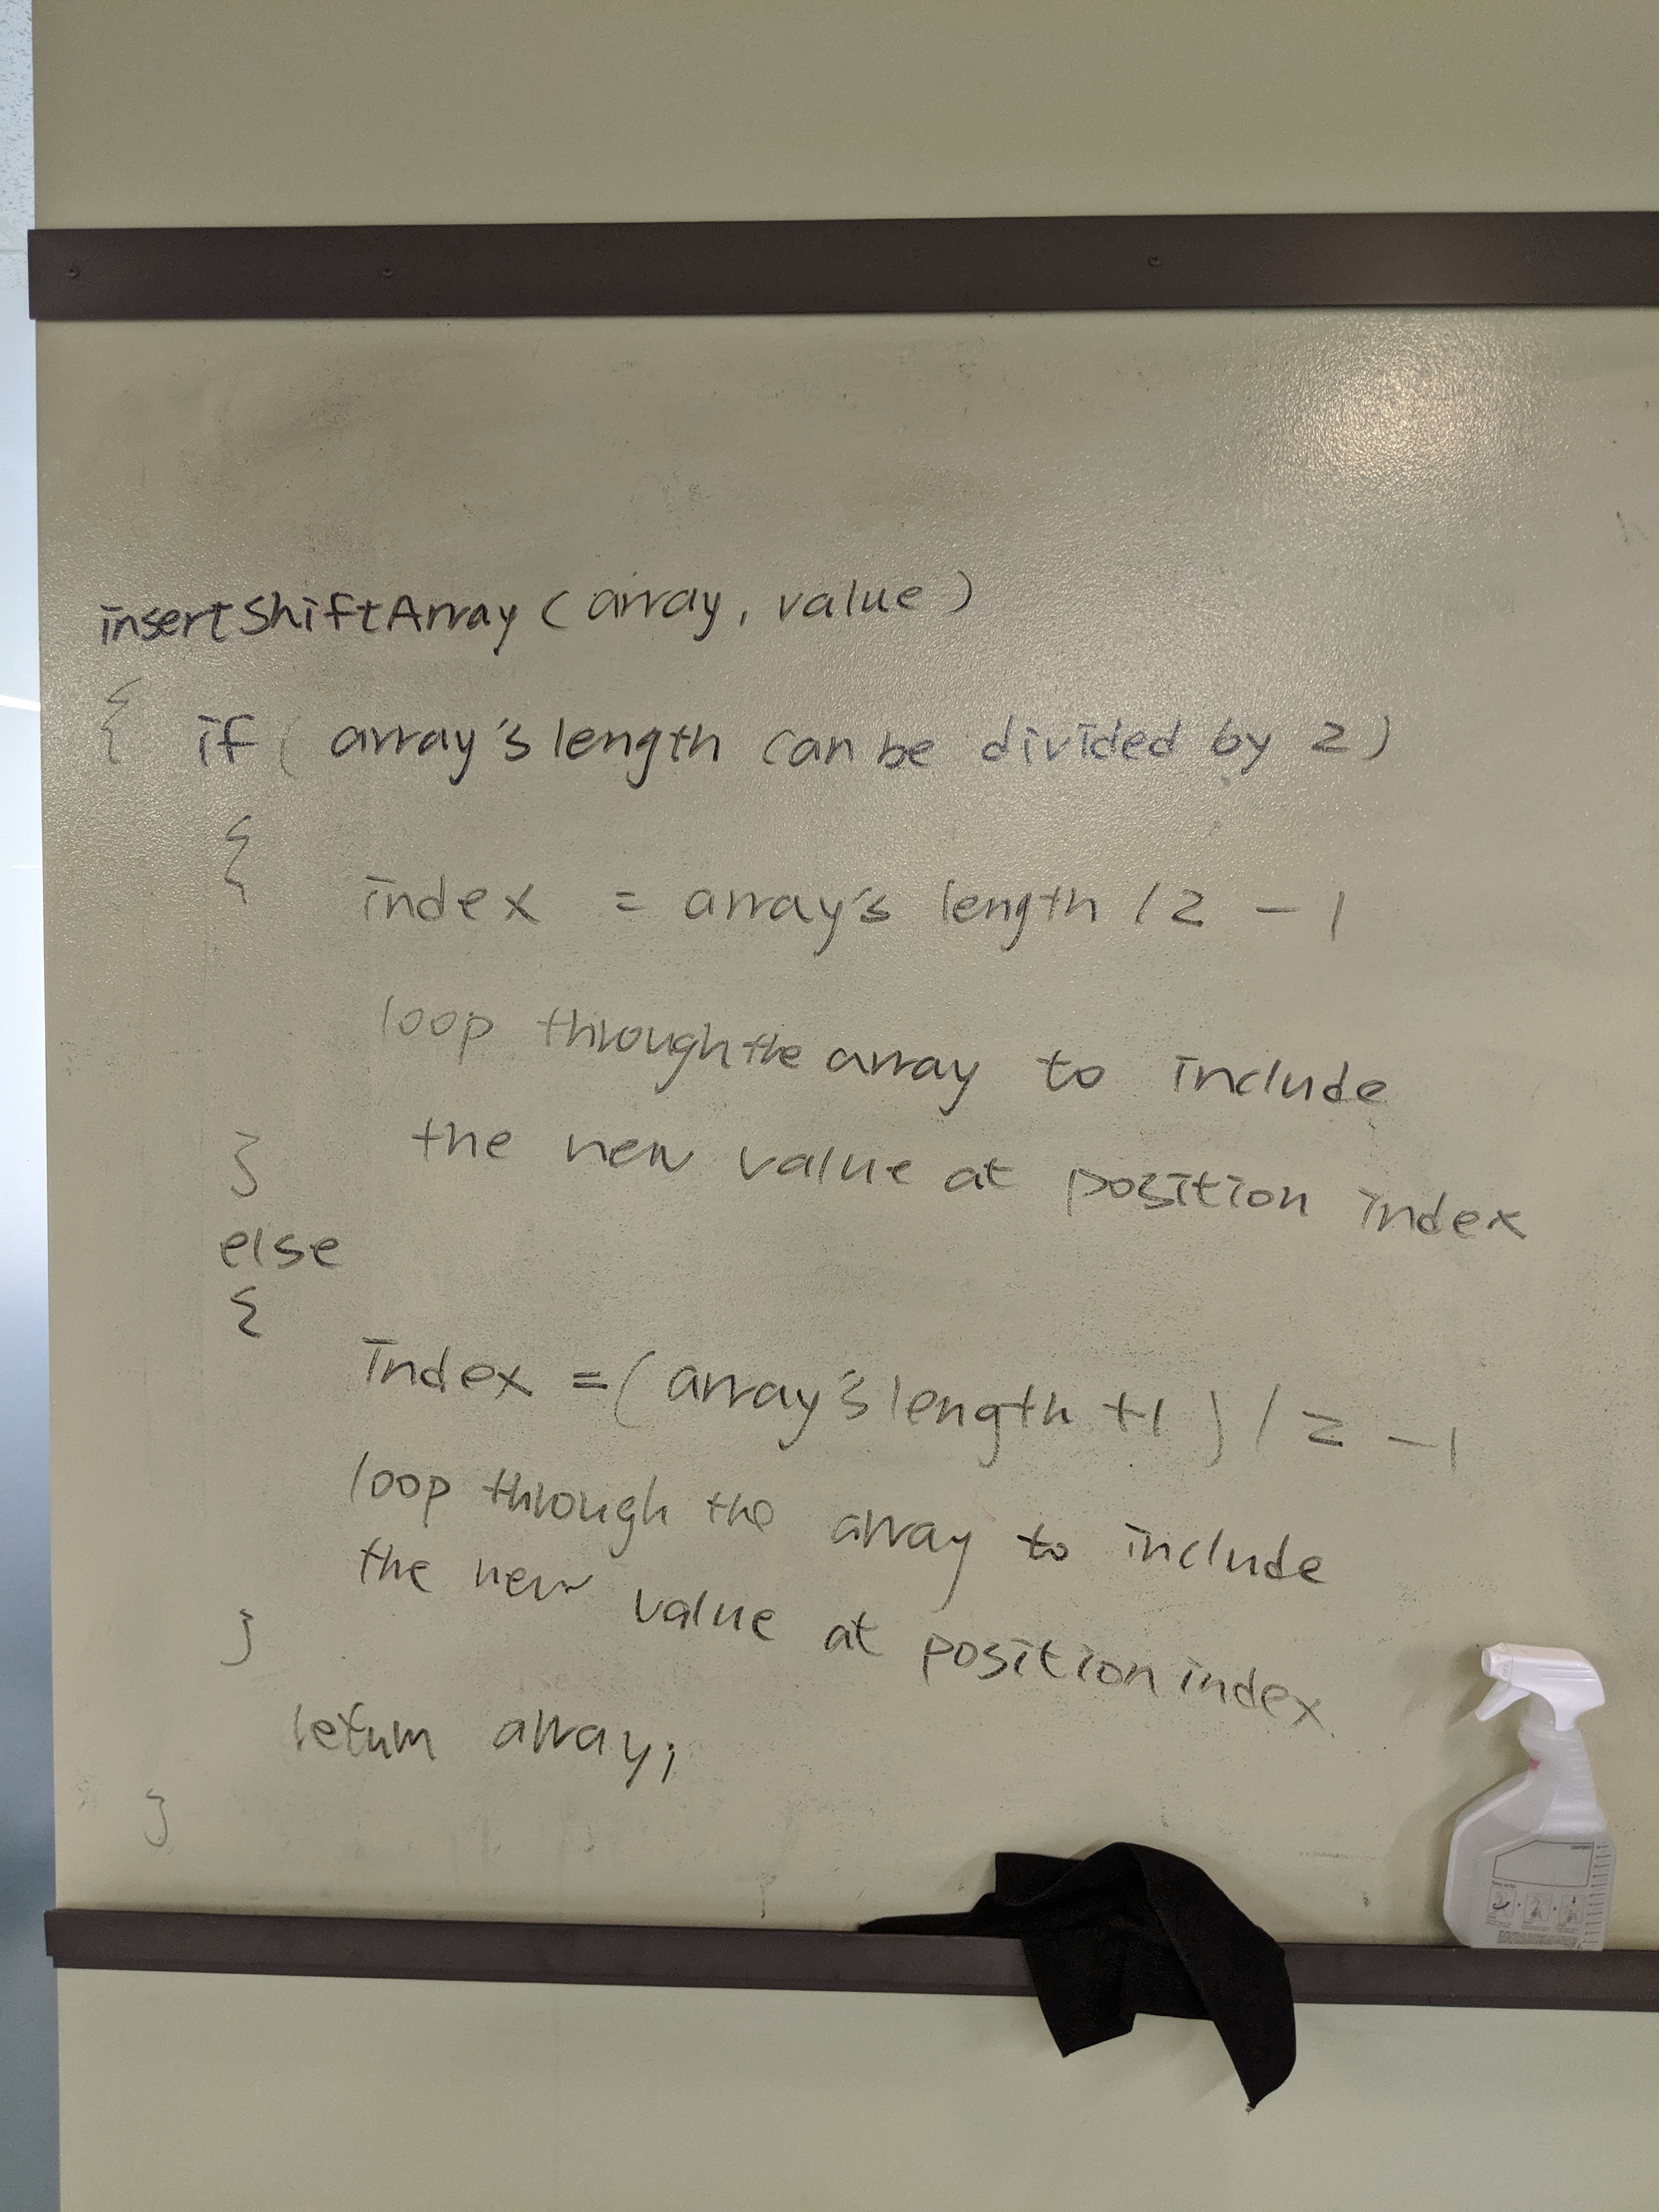 insertShiftArray (array, value)
{ if ( array's length can be divided by 2)
{
index = array's length / 2 - 1
loop through the array to include
the new value at position index
}
else
{
index = (array's length +1 ) / 2 - 1
loop through the array to include
the new value at position index
}
return array;
}